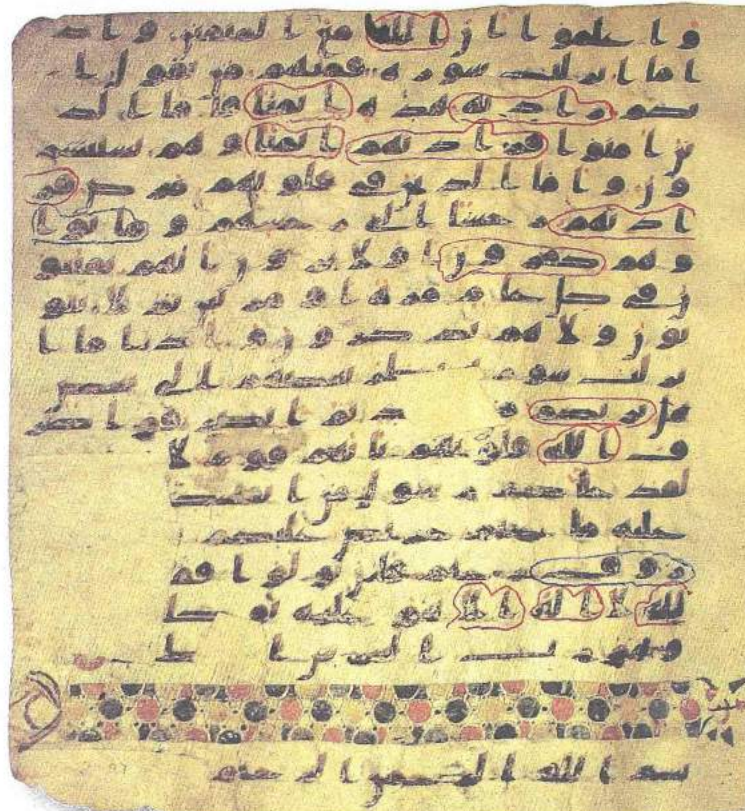 و اعلموا ان الله مع المتقين و اذ
ا ما انزلت سورة فمنهم من يقول ا
يكم زادته هذه ايمنا فاما الذ
ين امنوا فزادتهم ايمنا و هم يستبشر
ون واما الذين في قلوبهم مرض فز
ادتهم رجسا الى رجسهم و ماتوا
و هم كفرون اولا يرون انهم يفتنو
ن في كل عام مرة او مرتين ثم لا يتو
بون ولا هم يذكرون واذا ما ا
نزلت سورة نظر بعضهم الى بعض
هل يريكم د ثم انصرفوا صر
ف الله قلوبهم بانهم قوم لا
لقد جاكم رسول من انفسكم
عليه ما عنتم حريص عليكم
روف رحيم فان تولوا فقل
الله لا اله الا هو عليه توكل
وهو رب العرش ا
بسم الله الرحمن الرحيم